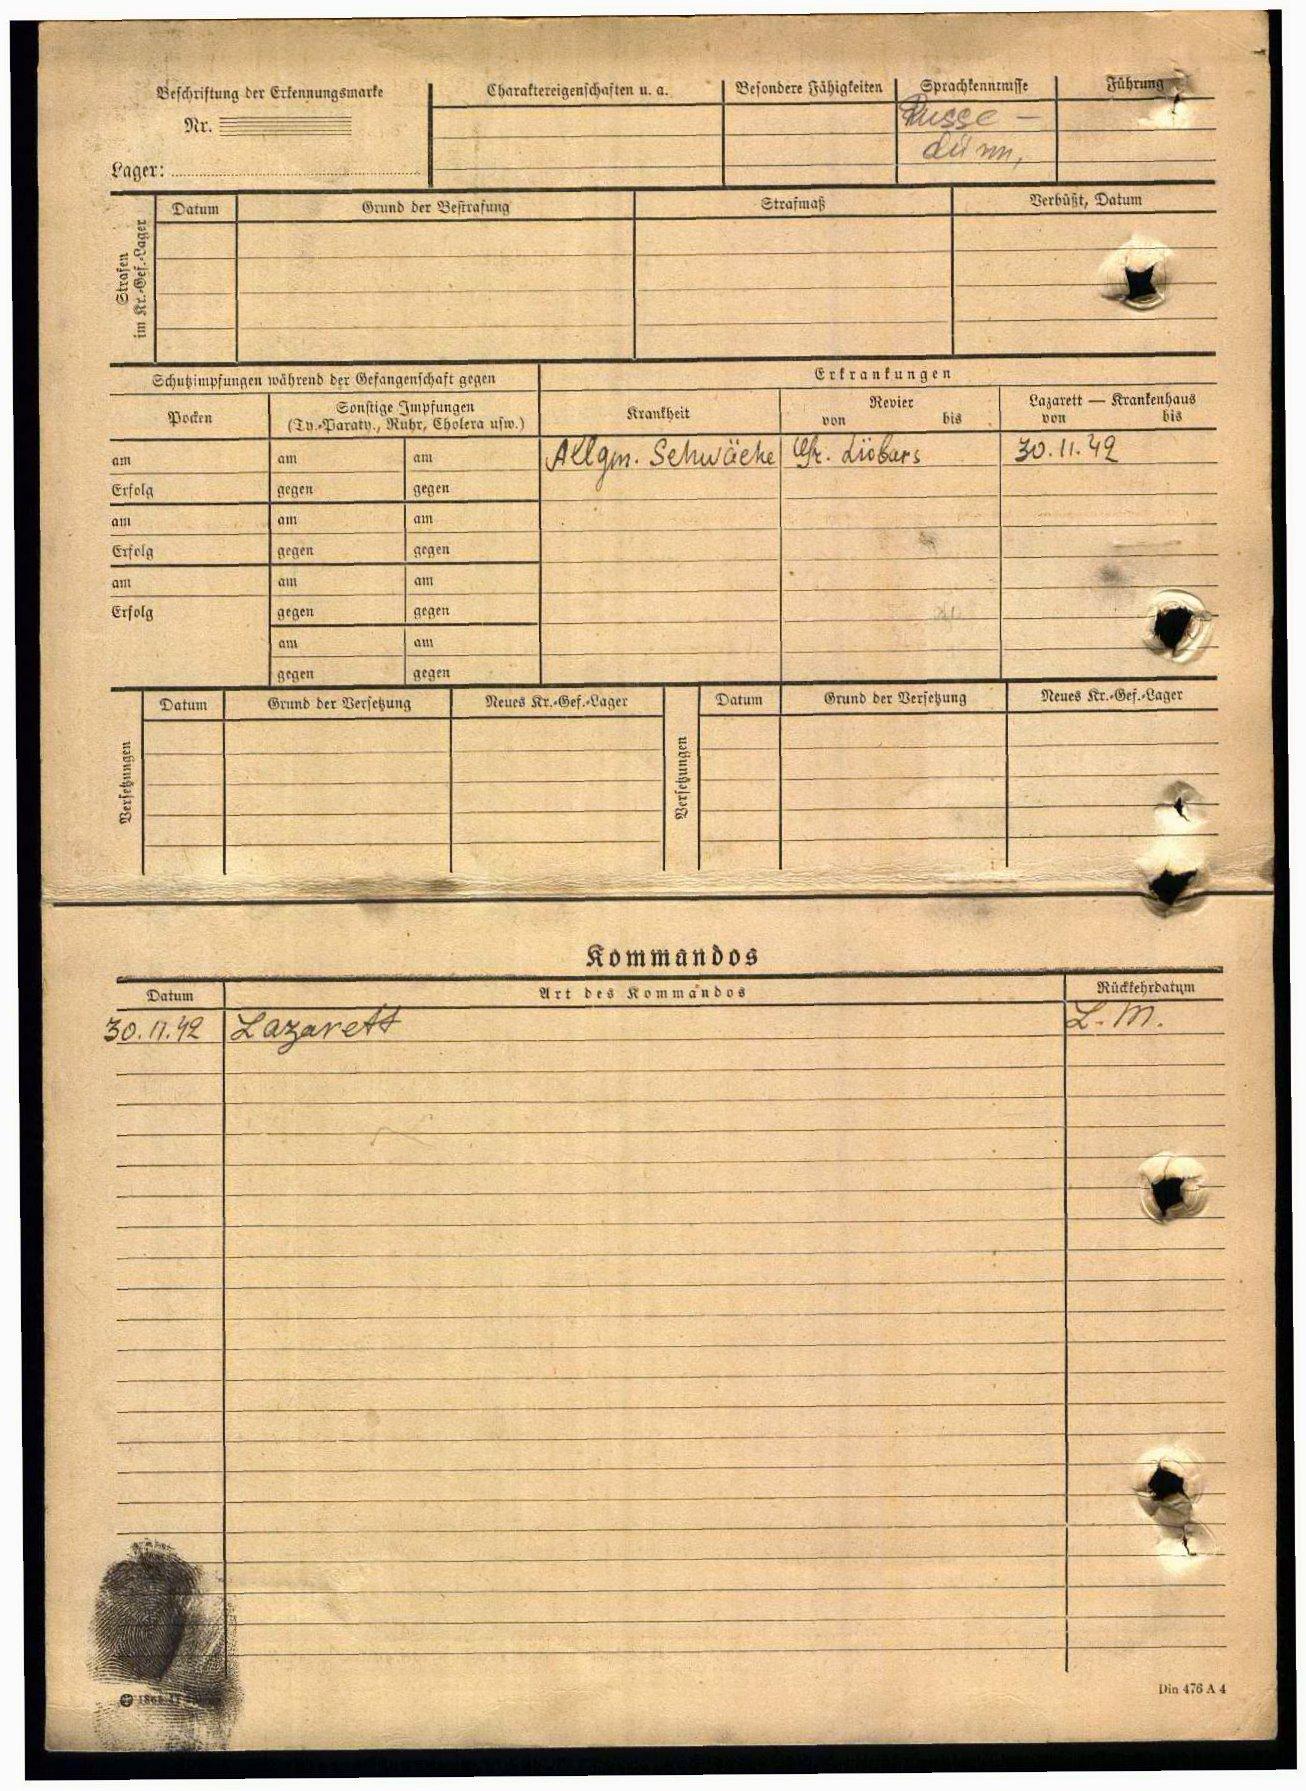 Beschriftung der Erkennungsmarke
Nr.
Lager:
Charaktereigenschaften u. a.
Besondere Fähigkeiten
Sprachkenntnisse
Führung
Russe –
dünn,
Strafen
im Kr.-Gef.-Lager
Datum
Grund der Bestrafung
Strafmaß
Verbüßt, Datum
Schutzimpfungen während der Gefangenschaft gegen
Erkrankungen
Pocken
Sonstige Impfungen
(Ty.-Paraty., Ruhr, Cholera usw.)
Krankheit
Revier
von bis
Lazarett — Krankenhaus
von bis
am am am Allgm. Schwäche Gr. Lübars 30.11.42
Erfolg gegen gegen
am am am
Erfolg gegen gegen
am am am
Erfolg gegen gegen
am am
gegen gegen
Versetzungen
Datum
Grund der Versetzung
Neues Kr.-Gef.-Lager
Versetzungen
Datum
Grund der Versetzung
Neues Kr.-Gef.-Lager
Kommandos
Datum Art des Kommandos Rückkehrdatum
30.11.42 Lazarett L. M.
Din 476 A 4